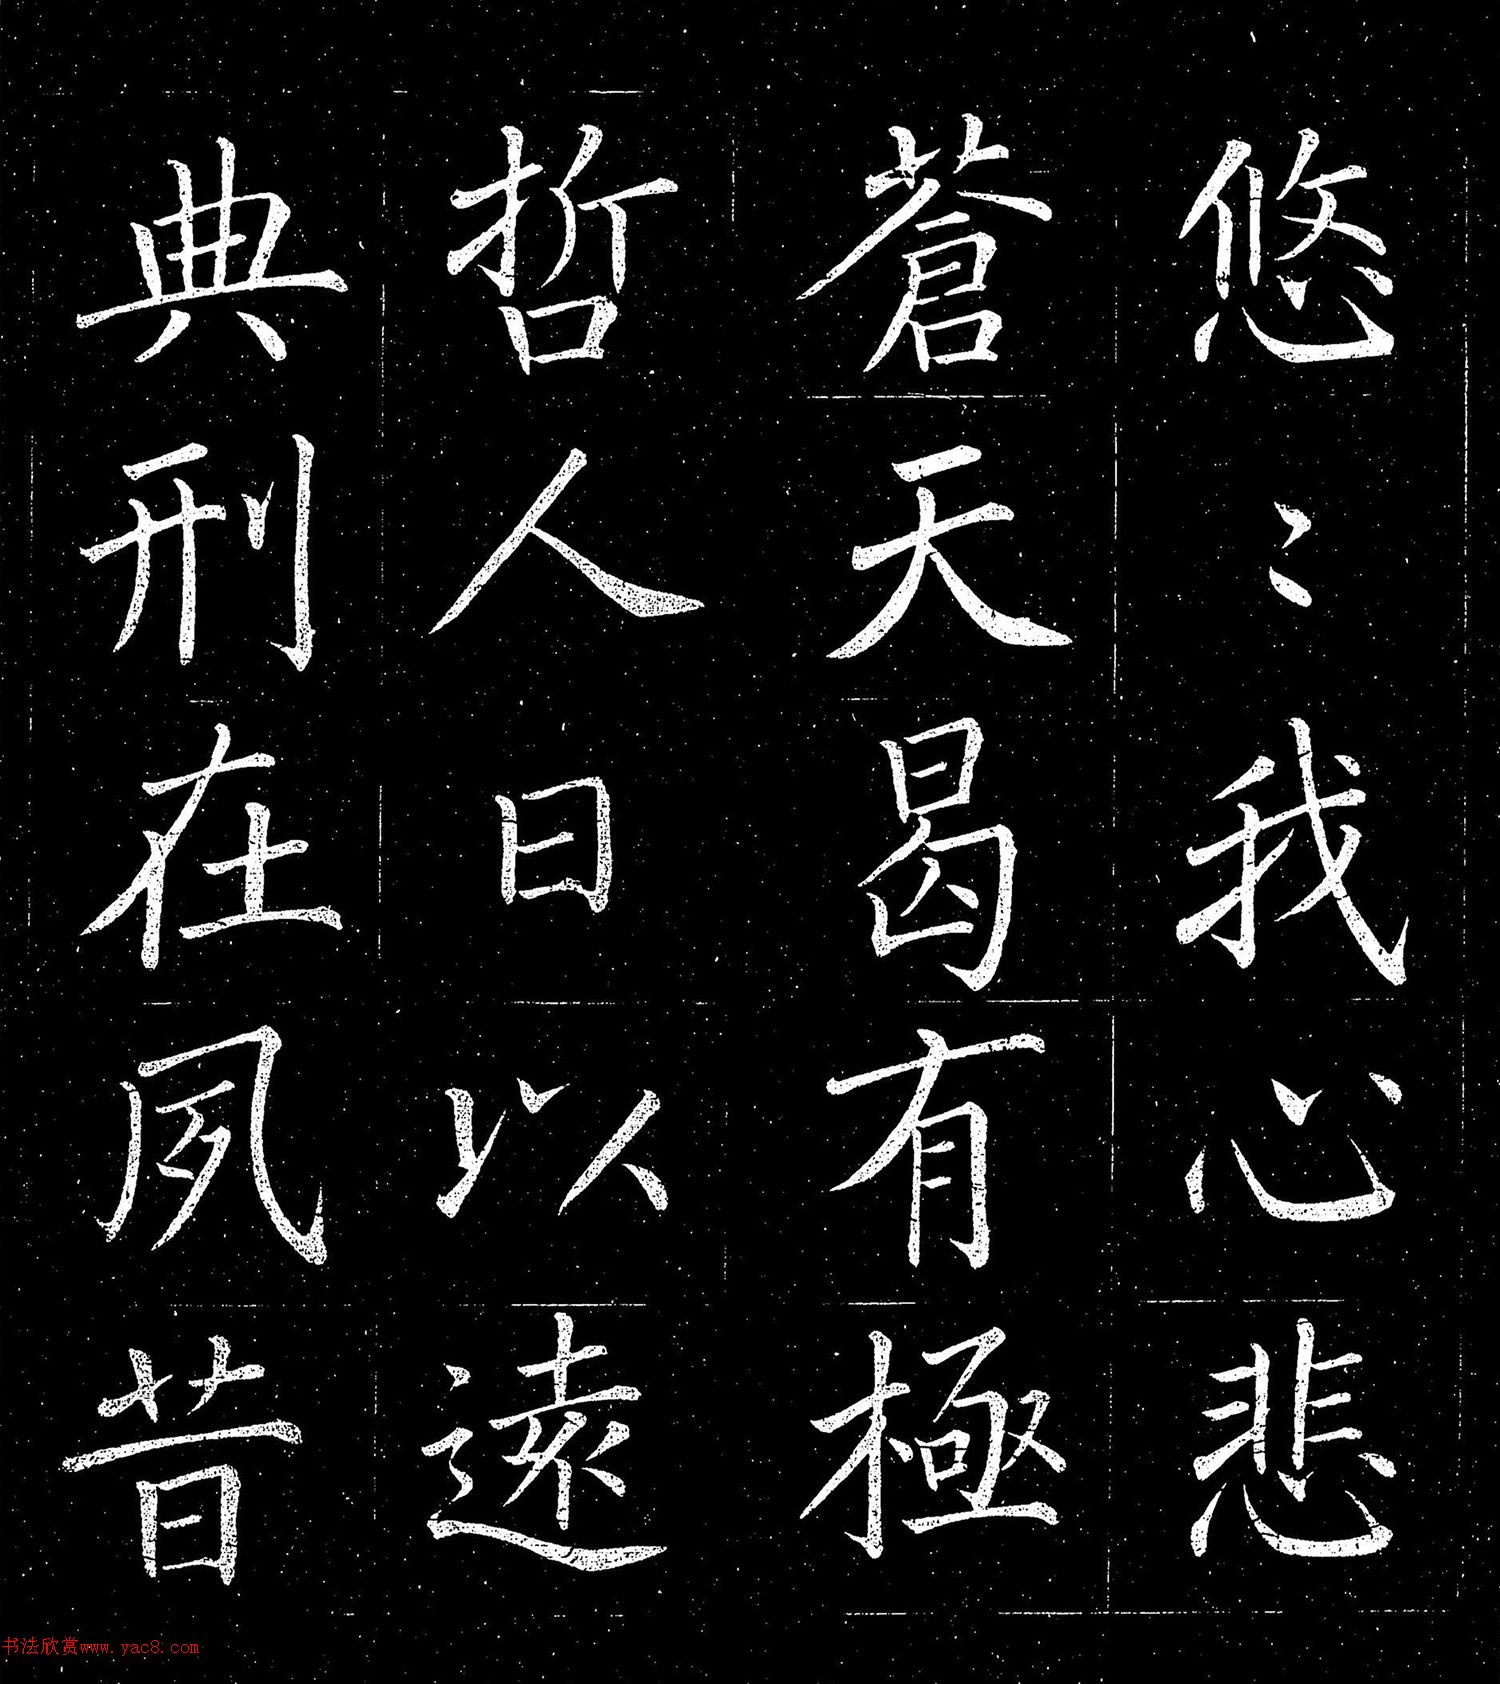 悠〻我心悲
蒼天曷有極
哲人日以遠
典刑在夙昔
书法欣赏www.yac8.com